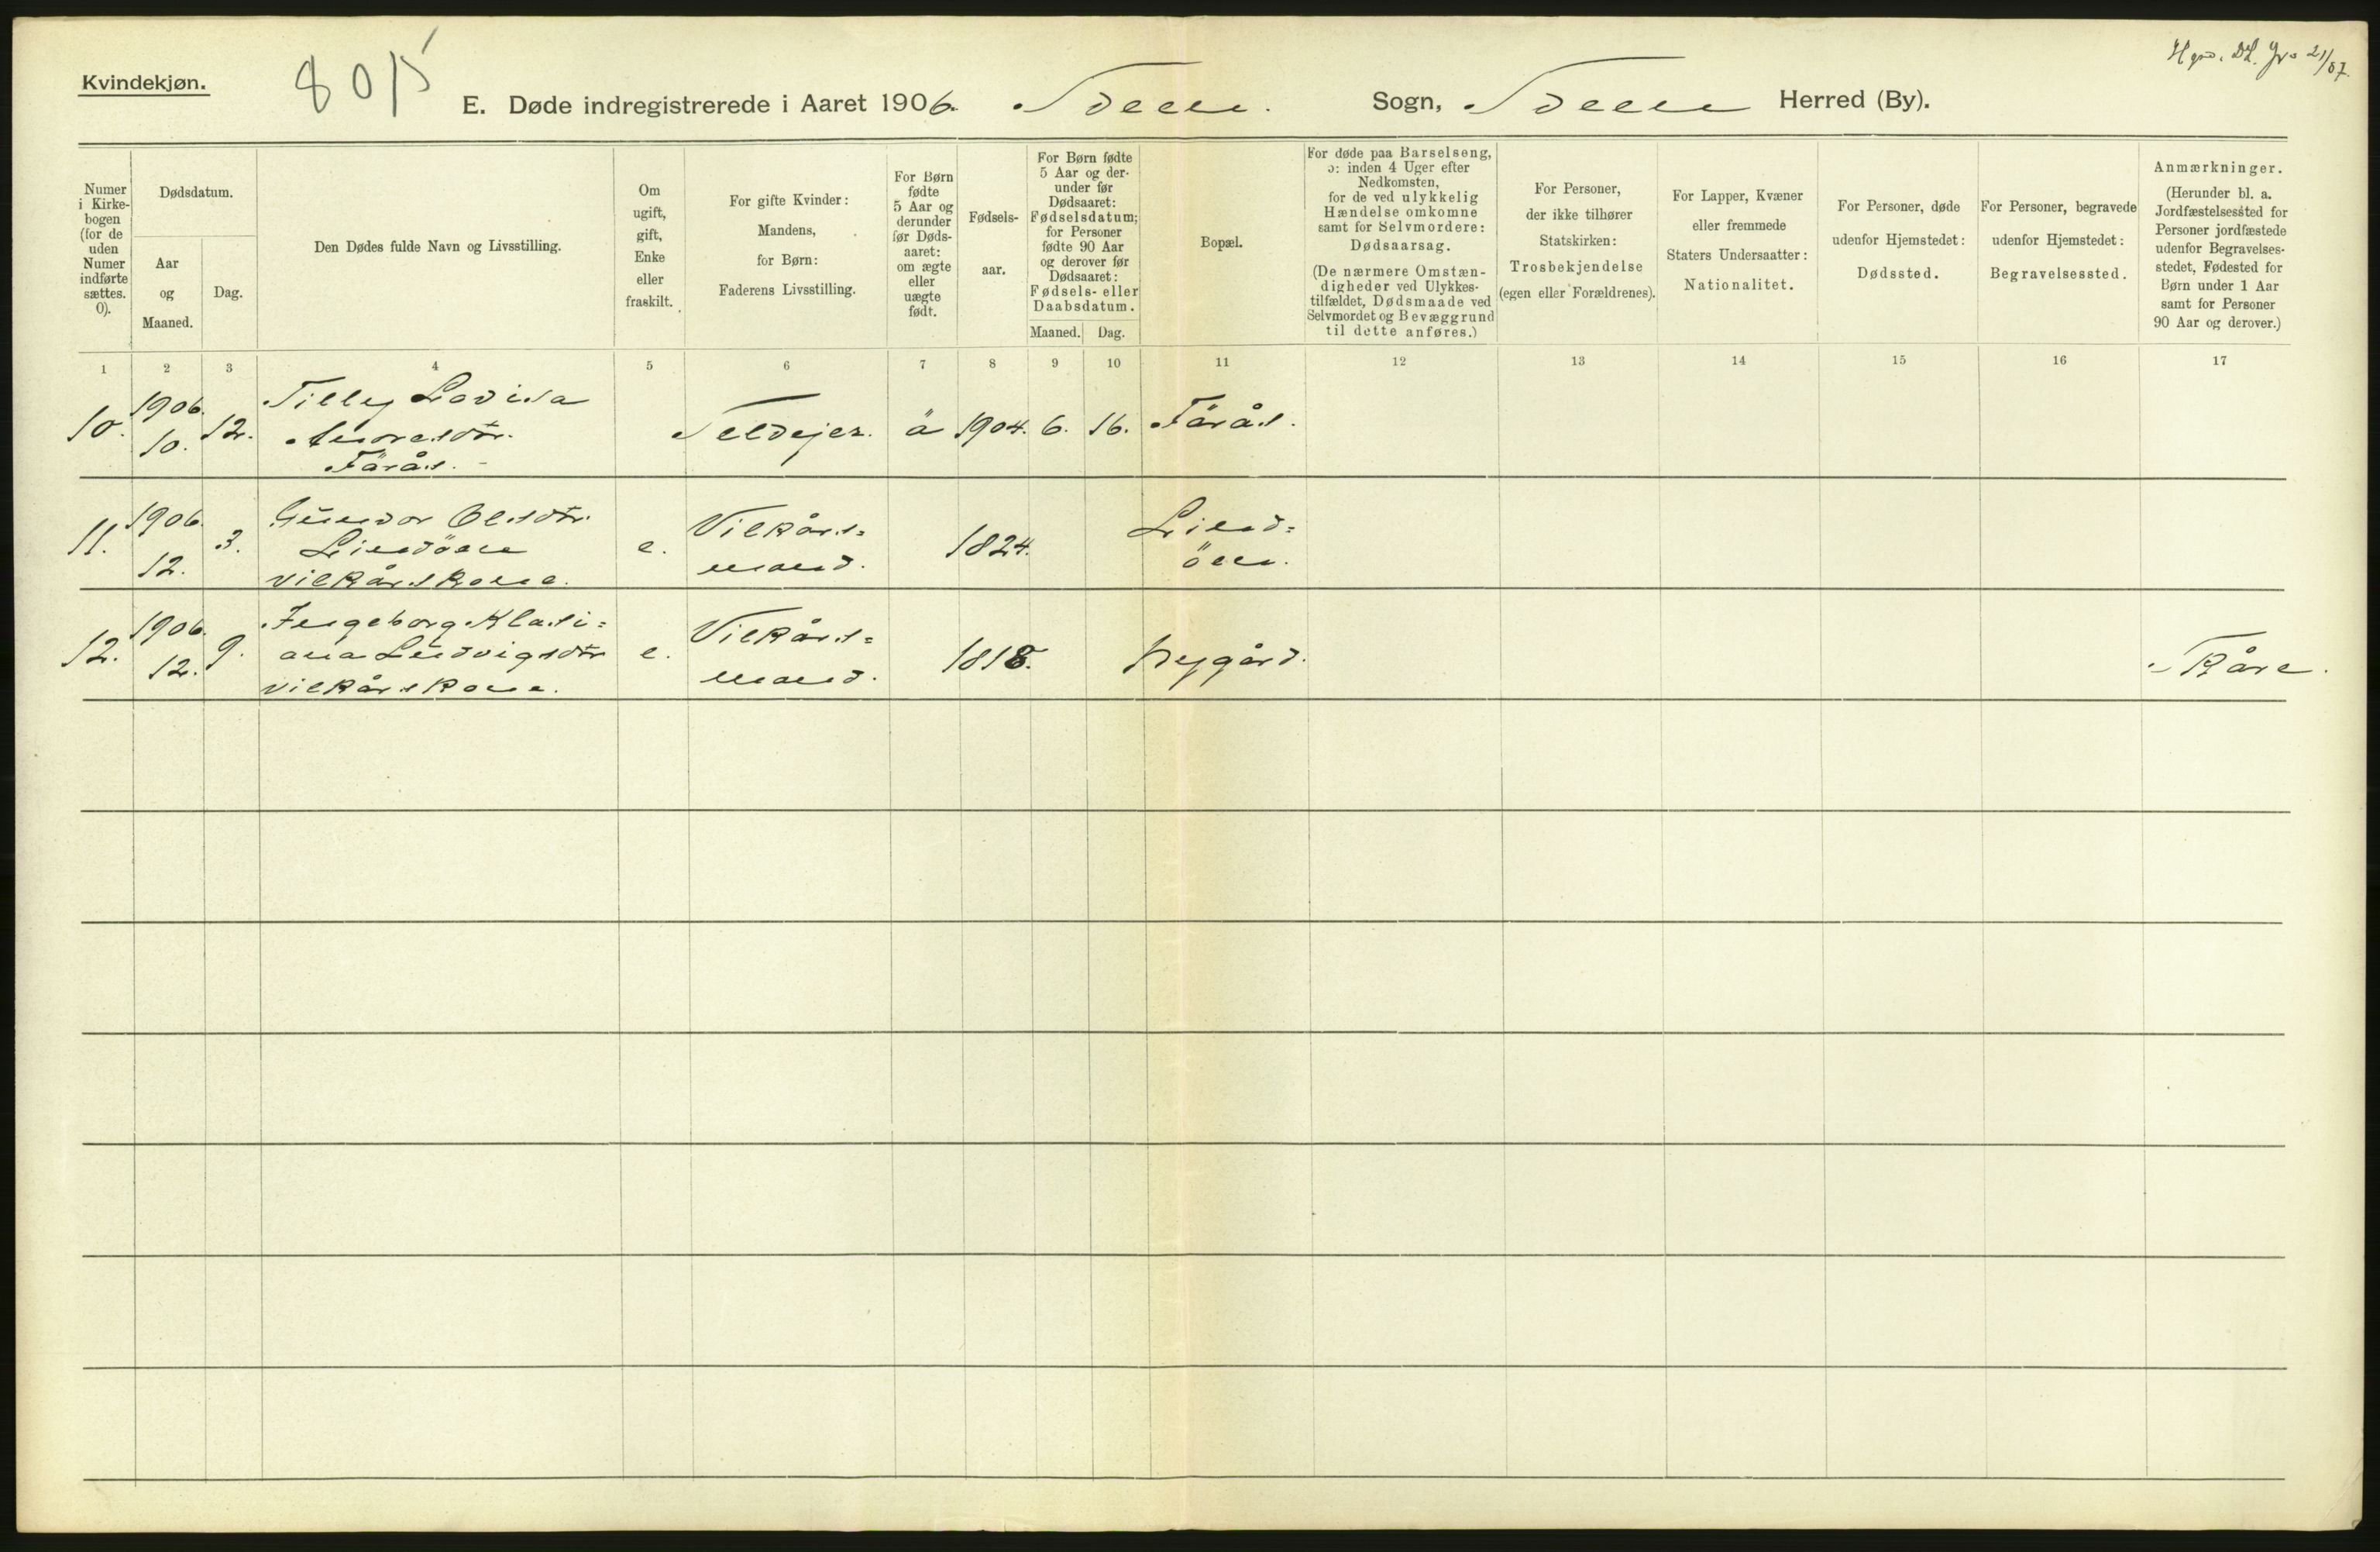 Kvindekjøn.
8015
E. Døde indregistrerede i Aaret 1906. Sogn, Herred (By).
Numer i Kirke-
bogen
(for de
uden
Numer
indførte
sættes.
0).
Dødsdatum.
Aar
og
Maaned.
Dag.
Den Dødes fulde Navn og Livsstilling.
Om
ugift,
gift,
Enke
eller
fraskilt.
For gifte Kvinder:
Mandens,
for Børn:
Faderens Livsstilling.
For Børn
fødte
5 Aar og
derunder
før Døds-
aaret:
om ægte
eller
uægte
født.
Fødsels-
aar.
For Børn fødte
5 Aar og der-
under før
Dødsaaret:
Fødselsdatum;
for Personer
fødte 90 Aar
og derover før
Dødsaaret:
Fødsels- eller
Daabsdatum.
Maaned. Dag.
Bopæl.
For døde paa Barselseng,
ɔ: inden 4 Uger efter
Nedkomsten,
for de ved ulykkelig
Hændelse omkomne
samt for Selvmordere:
Dødsaarsag.
(De nærmere Omstæn-
digheder ved Ulykkes-
tilfældet, Dødsmaade ved
Selvmordet og Bevæggrund
til dette anføres.)
For Personer,
der ikke tilhører
Statskirken:
Trosbekjendelse
(egen eller Forældrenes).
For Lapper, Kvæner
eller fremmede
Staters Undersaatter:
Nationalitet.
For Personer, døde
udenfor Hjemstedet:
Dødssted.
For Personer, begravede
udenfor Hjemstedet:
Begravelsessted.
Anmærkninger.
(Herunder bl. a.
Jordfæstelsessted for
Personer jordfæstede
udenfor Begravelses-
stedet, Fødested for
Børn under 1 Aar
samt for Personer
90 Aar og derover.)
1 2 3 4 5 6 7 8 9 10 11 12 13 14 15 16 17
10. 1906. 10. 12. Tilley Lovisa
Anorsdtr.
Färås. Seldejer. ä 1904. 6. 16. Färås.
11. 1906. 12. 3. Gunvor Olsdtr.
Lindöen
vilkårskone. e. Vilkårs=
mand. 1824. Lind=
öen.
12. 1906. 12. 9. Ingeborg Klasi=
ana Ludvigsdtr
vilkårskone. e. Vilkårs=
mand. 1818. Nygård. Skåre.